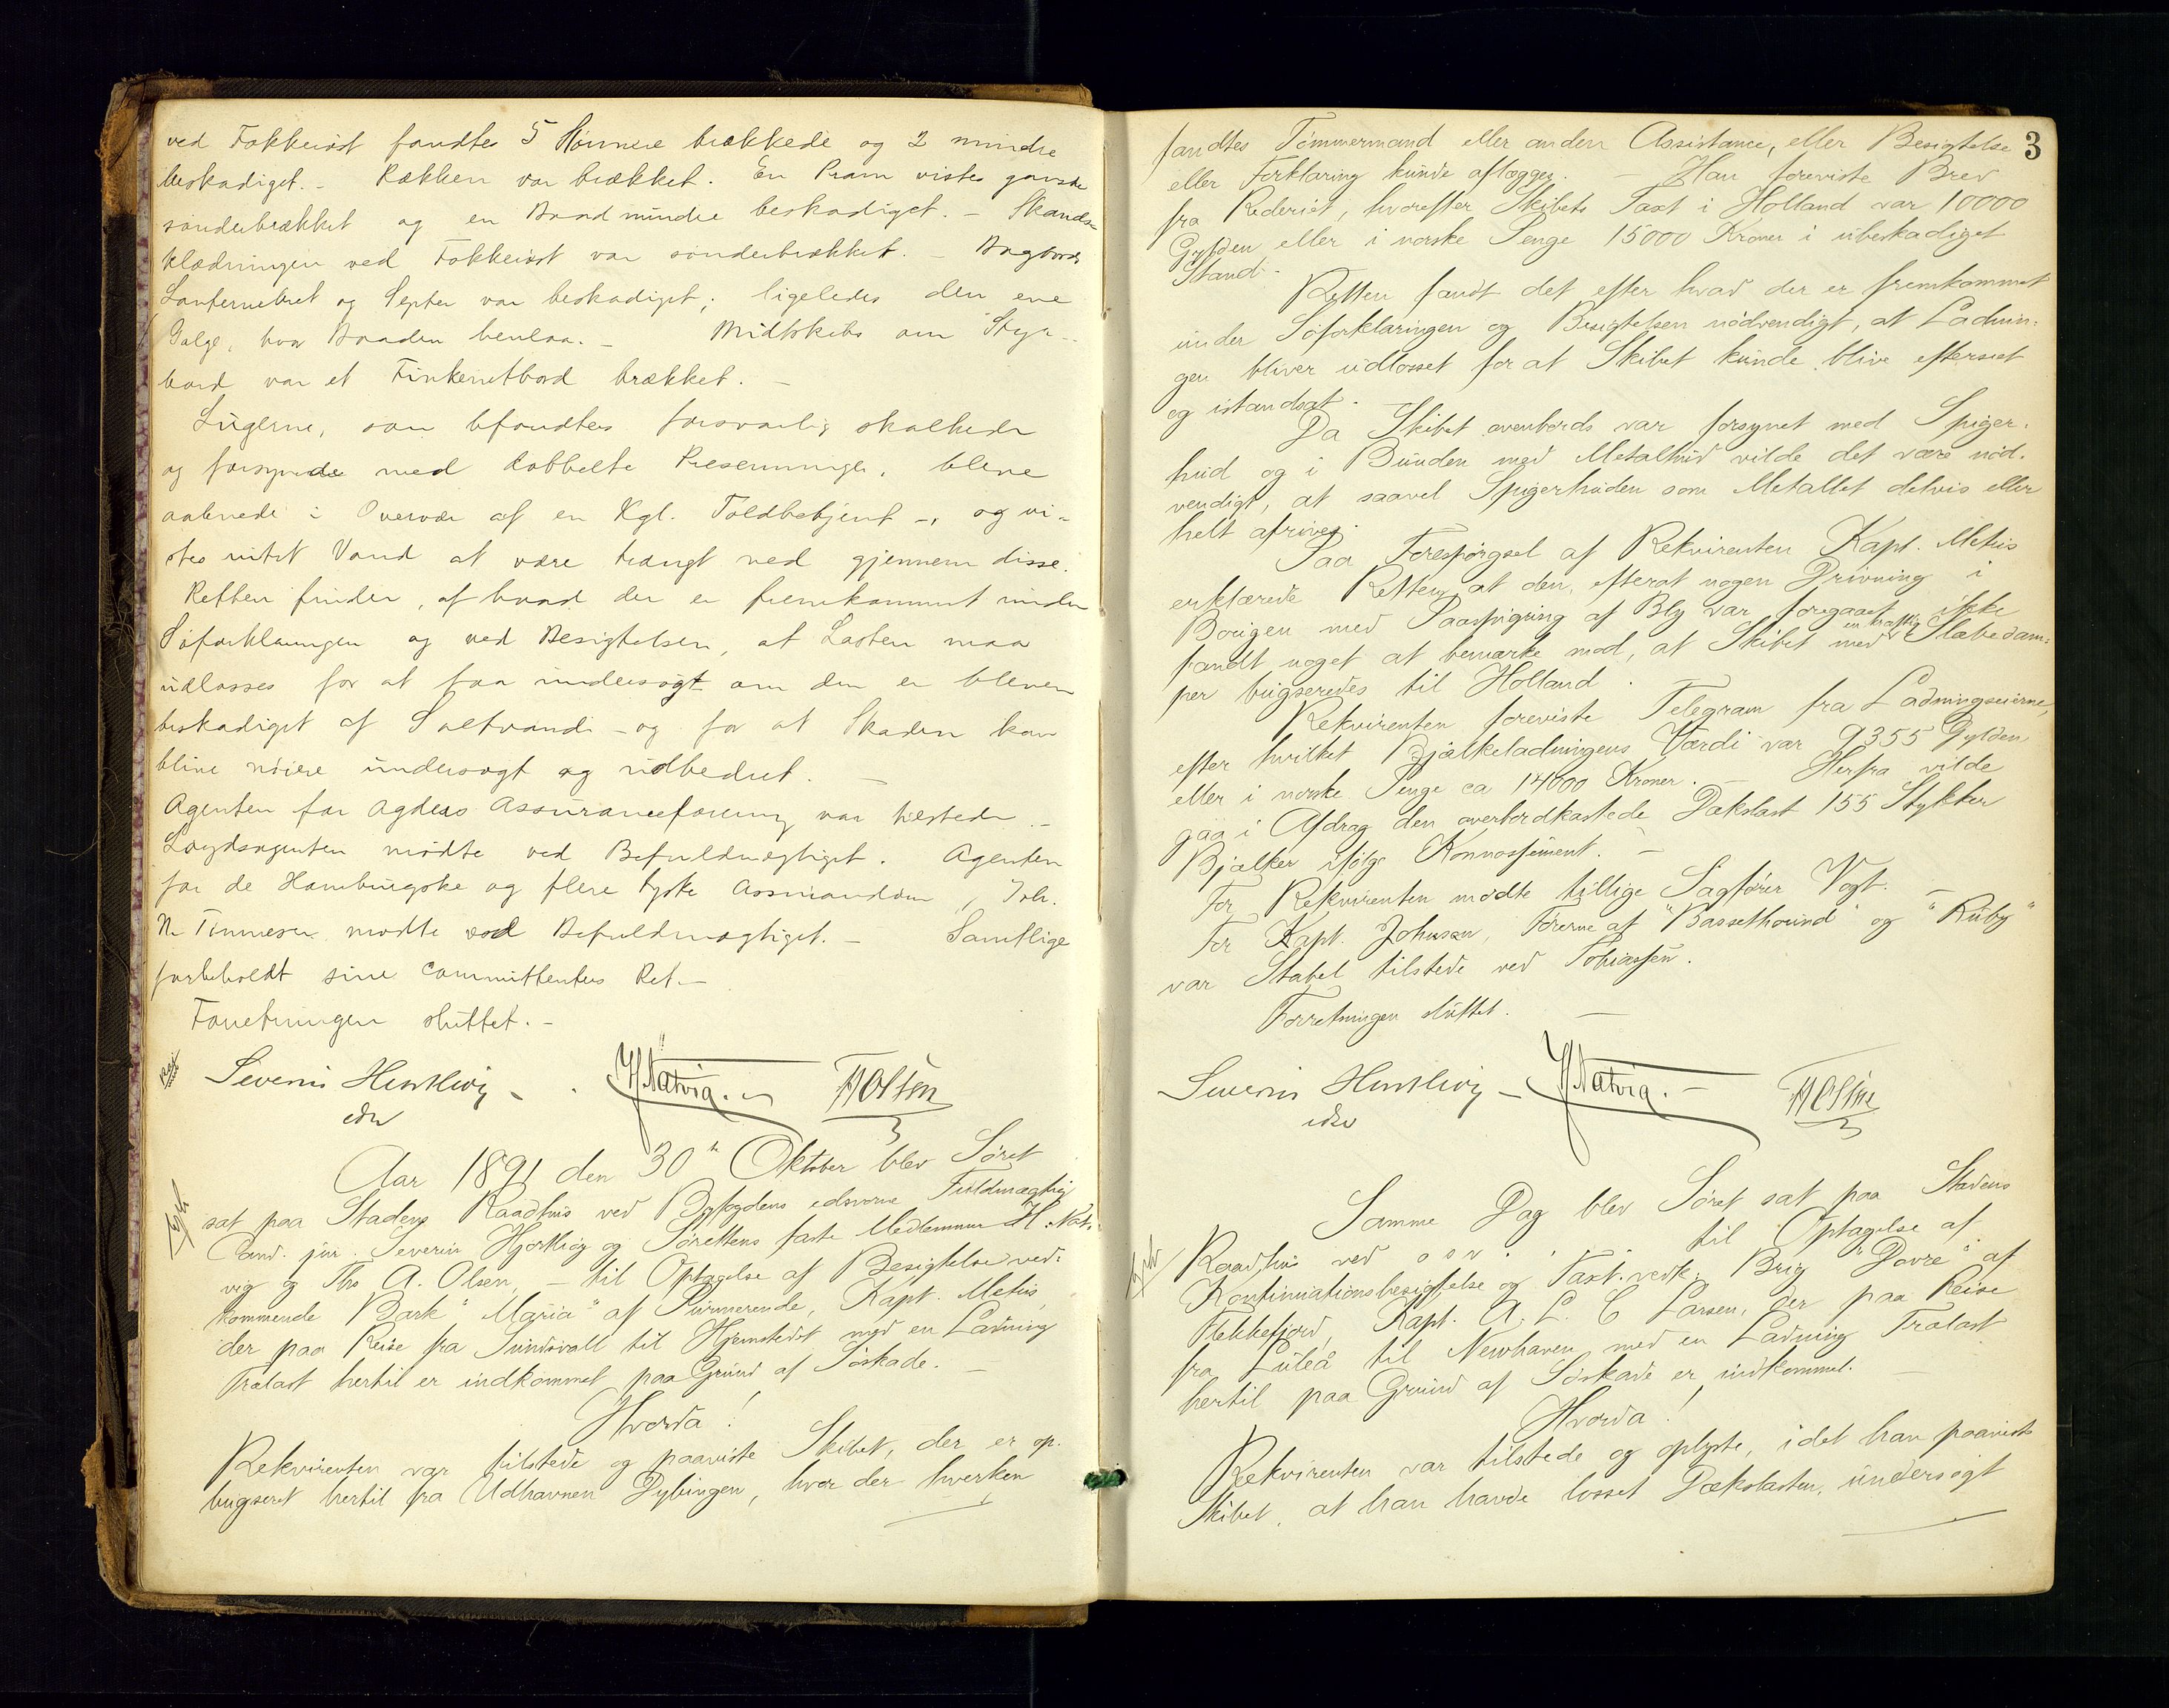 ved Fokkeröst fandtes 5 Stönnere brækkede og 2 mindre
beskadiget. - Rækken var brækket. En Pram vistes ganske
sönderbrækket og en Baad mindre beskadiget. - Skands-
klædningen ved Fokkeröst var sönderbrækket. - Bagbords
Lanternebret og Septer var beskadiget; ligeledes den ene
Galge, hvor Baaden henlaa. - Midtskibs om Styr-
bord var et Finkenetbord brækket. -
Lugerne, som befandtes forsvarlig skalkede
og forsynede med dobbelte Presenninger, bleve
aabnede i Overvær af en Kgl. Toldbetjent -, og vi-
stes intet Vand at være trængt ned gjennem disse.
Retten finder, af hvad der er fremkommet under
Söforklaringen og ved Besigtelsen, at Lasten maa
udlosses for at faa undersögt om den er bleven
beskadiget af Saltvand - og for at Skaden kan
blive nöiere undersögt og udbedret. -
Agenten for Agders Assuranceforening var tilstede. -
Loydsagenten mödte ved Befuldmægtiget. Agenten
for de Hamburgske og flere tyske Assurandöm, Joh.
N. Tönnesen mödte ved Befuldmægtiget. - Samtlige
forbeholdt sine Committenters Ret. -
Forretningen sluttet. -
Severin Hiortliöy - H Natvig. - TAOlsen
edsv
Aar 1891 den 30te Oktober blev Söret
sat paa Stadens Raadhus ved Byfogdens edsvorne Fuldmægtig
Cand. jur. Severin Hjortliöy og Sörettens faste Medlemmer H. Nat-
vig og Ths A. Olsen, - til Optagelse af Besigtelse ved-
kommende Bark "Maria" af Purmerende, Kapt. Metus,
der paa Reise fra Sundsvall til Hjemstedet med en Ladning
Trælast hertil er indkommet paa Grund af Söskade. -
Hvorda!
Rekvirenten var tilstede og paaviste Skibet, der er op-
bugseret hertil fra Udhavnen Dybingen, hvor der hverken
3
fandtes Tömmermand eller anden Assistance, eller Besigtelse
eller Forklaring kunde aflægges. - Han foreviste Brev
fra Rederiet, hvorefter Skibets Taxt i Holland var 10000
Gylden eller i norske Penge 15000 Kroner i ubeskadiget
Stand. -
Retten fandt det efter hvad der er fremkommet
under Söforklaringen og Besigtelsen nödvendigt, at Ladnin-
gen bliver udlosset for at Skibet kunde blive efterseet
og istandsat. -
Da Skibet ovenbords var forsynet med Spiger-
hud og i Bunden med Metalhud vilde det være nöd-
vendigt, at saavel Spigerhuden som Metallet delvis eller
helt afrives.
Paa Forespörgsel af Rekvirenten Kapt. Metus
erklærede Retten, at den, efterat nogen Drivning i
Bougen med Paaspigring af Bly var foregaaet ikke
fandt noget at bemærke mod, at Skibet med en kraftig Slæbedam-
per bugseredes til Holland.
Rekvirenten foreviste Telegram fra Ladningseierne,
efter hvilket Bjælkeladningens Værdi var 9355 Gylden
eller i norske Penge ca 14000 Kroner. - Herfra vilde
gaa i Afdrag den overbordkastede Dækslast 155 Stykker
Bjælker ifölge Konnossement. -
For Rekvirenten mödte tillige Sagförer Vogt. -
For Kapt. Johnsen, Förerne af "Bassethound" og "Ruby"
var Stabel tilstede ved Tobiassen.
Forretningen sluttet. -
Severin Hiortliöy - H Natvig. - TAOlsen
edsv
Samme Dag blev Söret sat paa Stadens
Raadhus ved o s v . . . til Optagelse af
Kontinuationsbesigtelse og Taxt. vedk. Brig "Dovre" af
Flekkefjord, Kapt. A. L. C Larsen, der paa Reise
fra Luleå til Newhaven med en Ladning Trælast
hertil paa Grund af Söskade er indkommet. -
Hvorda!
Rekvirenten var tilstede og oplyste, idet han paaviste
Skibet, at han havde losset Dækslasten, undersögt